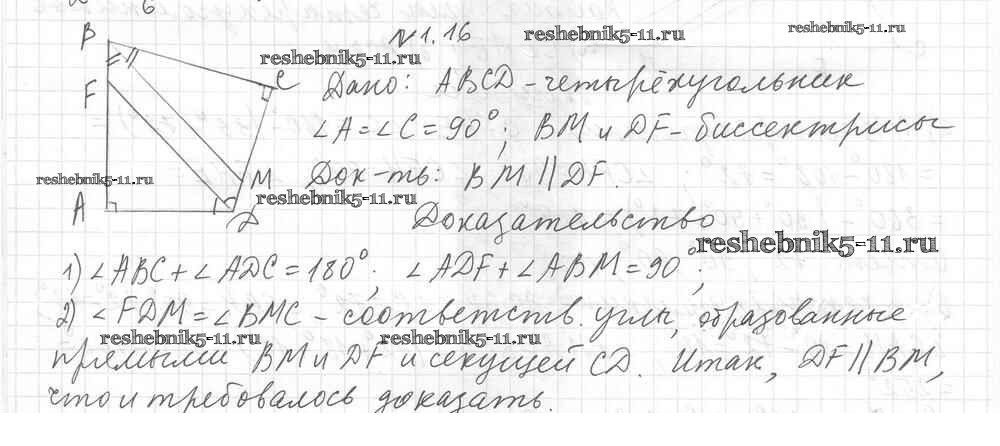 6
B
№1.16
reshebnik5-11.ru
reshebnik5-11.ru
reshebnik5-11.ru
C
F
Дано: ABCD - четырёхугольник
∠A = ∠C = 90°; BM и DF - биссектрисы
reshebnik5-11.ru
M
Док-ть: BM || DF.
reshebnik5-11.ru
A
D
Доказательство
reshebnik5-11.ru
1) ∠ABC + ∠ADC = 180°; ∠ADF + ∠ABM = 90°;
2) ∠FDM = ∠BMC - соответств. углы, образованные
reshebnik5-11.ru
reshebnik5-11.ru
прямыми BM и DF и секущей CD. Итак, DF || BM,
что и требовалось доказать.